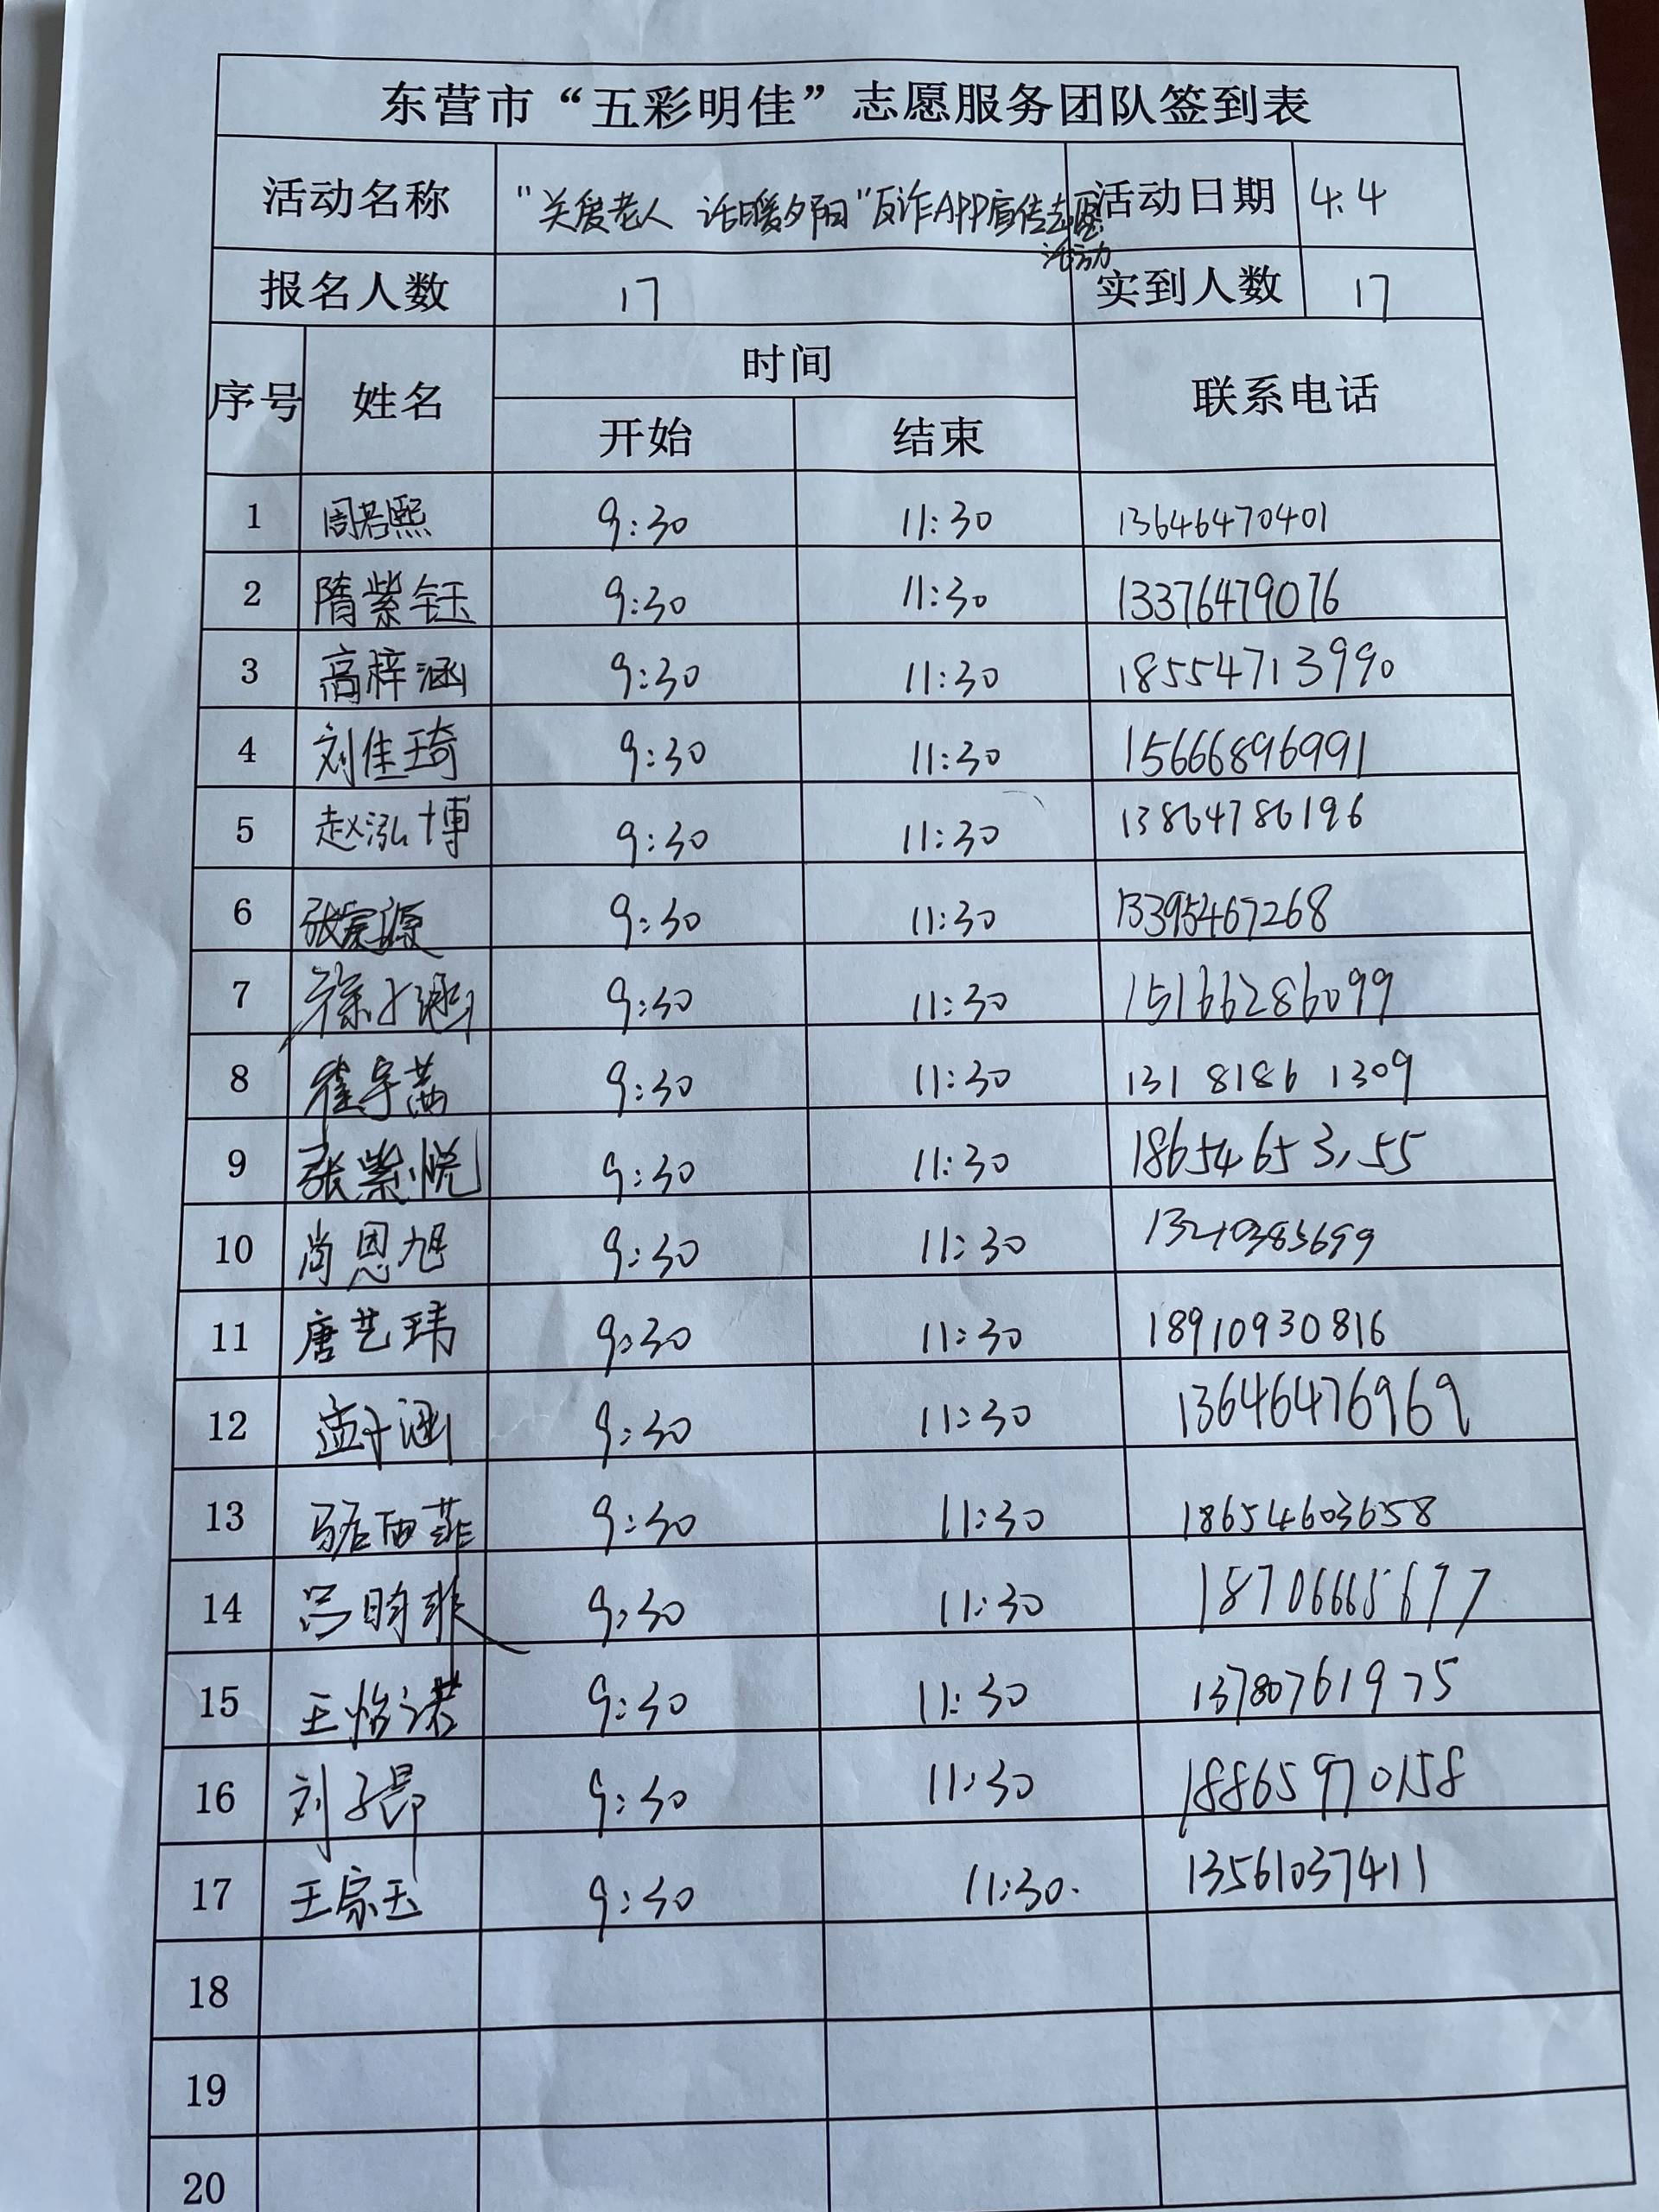 东营市“五彩明佳”志愿服务团队签到表
活动名称 “关爱老人 话暖夕阳”反诈APP宣传志愿活动 活动日期 4.4
报名人数 17 实到人数 17
序号 姓名 时间 联系电话
开始 结束
1 周若熙 9:30 11:30 13646470401
2 隋紫钰 9:30 11:30 13376479076
3 高梓涵 9:30 11:30 18554713990
4 刘佳琦 9:30 11:30 15666896991
5 赵泓博 9:30 11:30 13864786196
6 9:30 11:30 13395467268
7 徐子涵 9:30 11:30 15166286099
8 崔宇菡 9:30 11:30 131 8186 1309
9 张紫悦 9:30 11:30
10 尚恩旭 9:30 11:30
11 唐艺玮 9:30 11:30 18910930816
12 孟子涵 9:30 11:30 13646476969
13 骆雨菲 9:30 11:30 18654603658
14 吕昀非 9:30 11:30 18706665677
15 王怡诺 9:30 11:30 13780761975
16 刘子昂 9:30 11:30 18865970158
17 王家玉 9:30 11:30. 13561037411
18
19
20